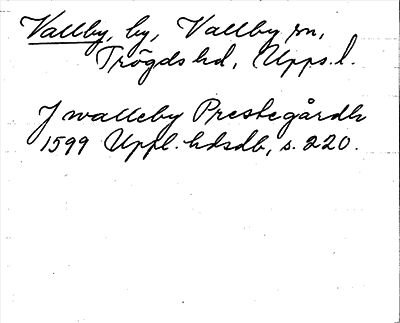 Vallby, by, Vallby sn,
Trögds hd, Upps. l.
J walleby Prestegårdh
1599 Uppl. hdsdb, s. 220.